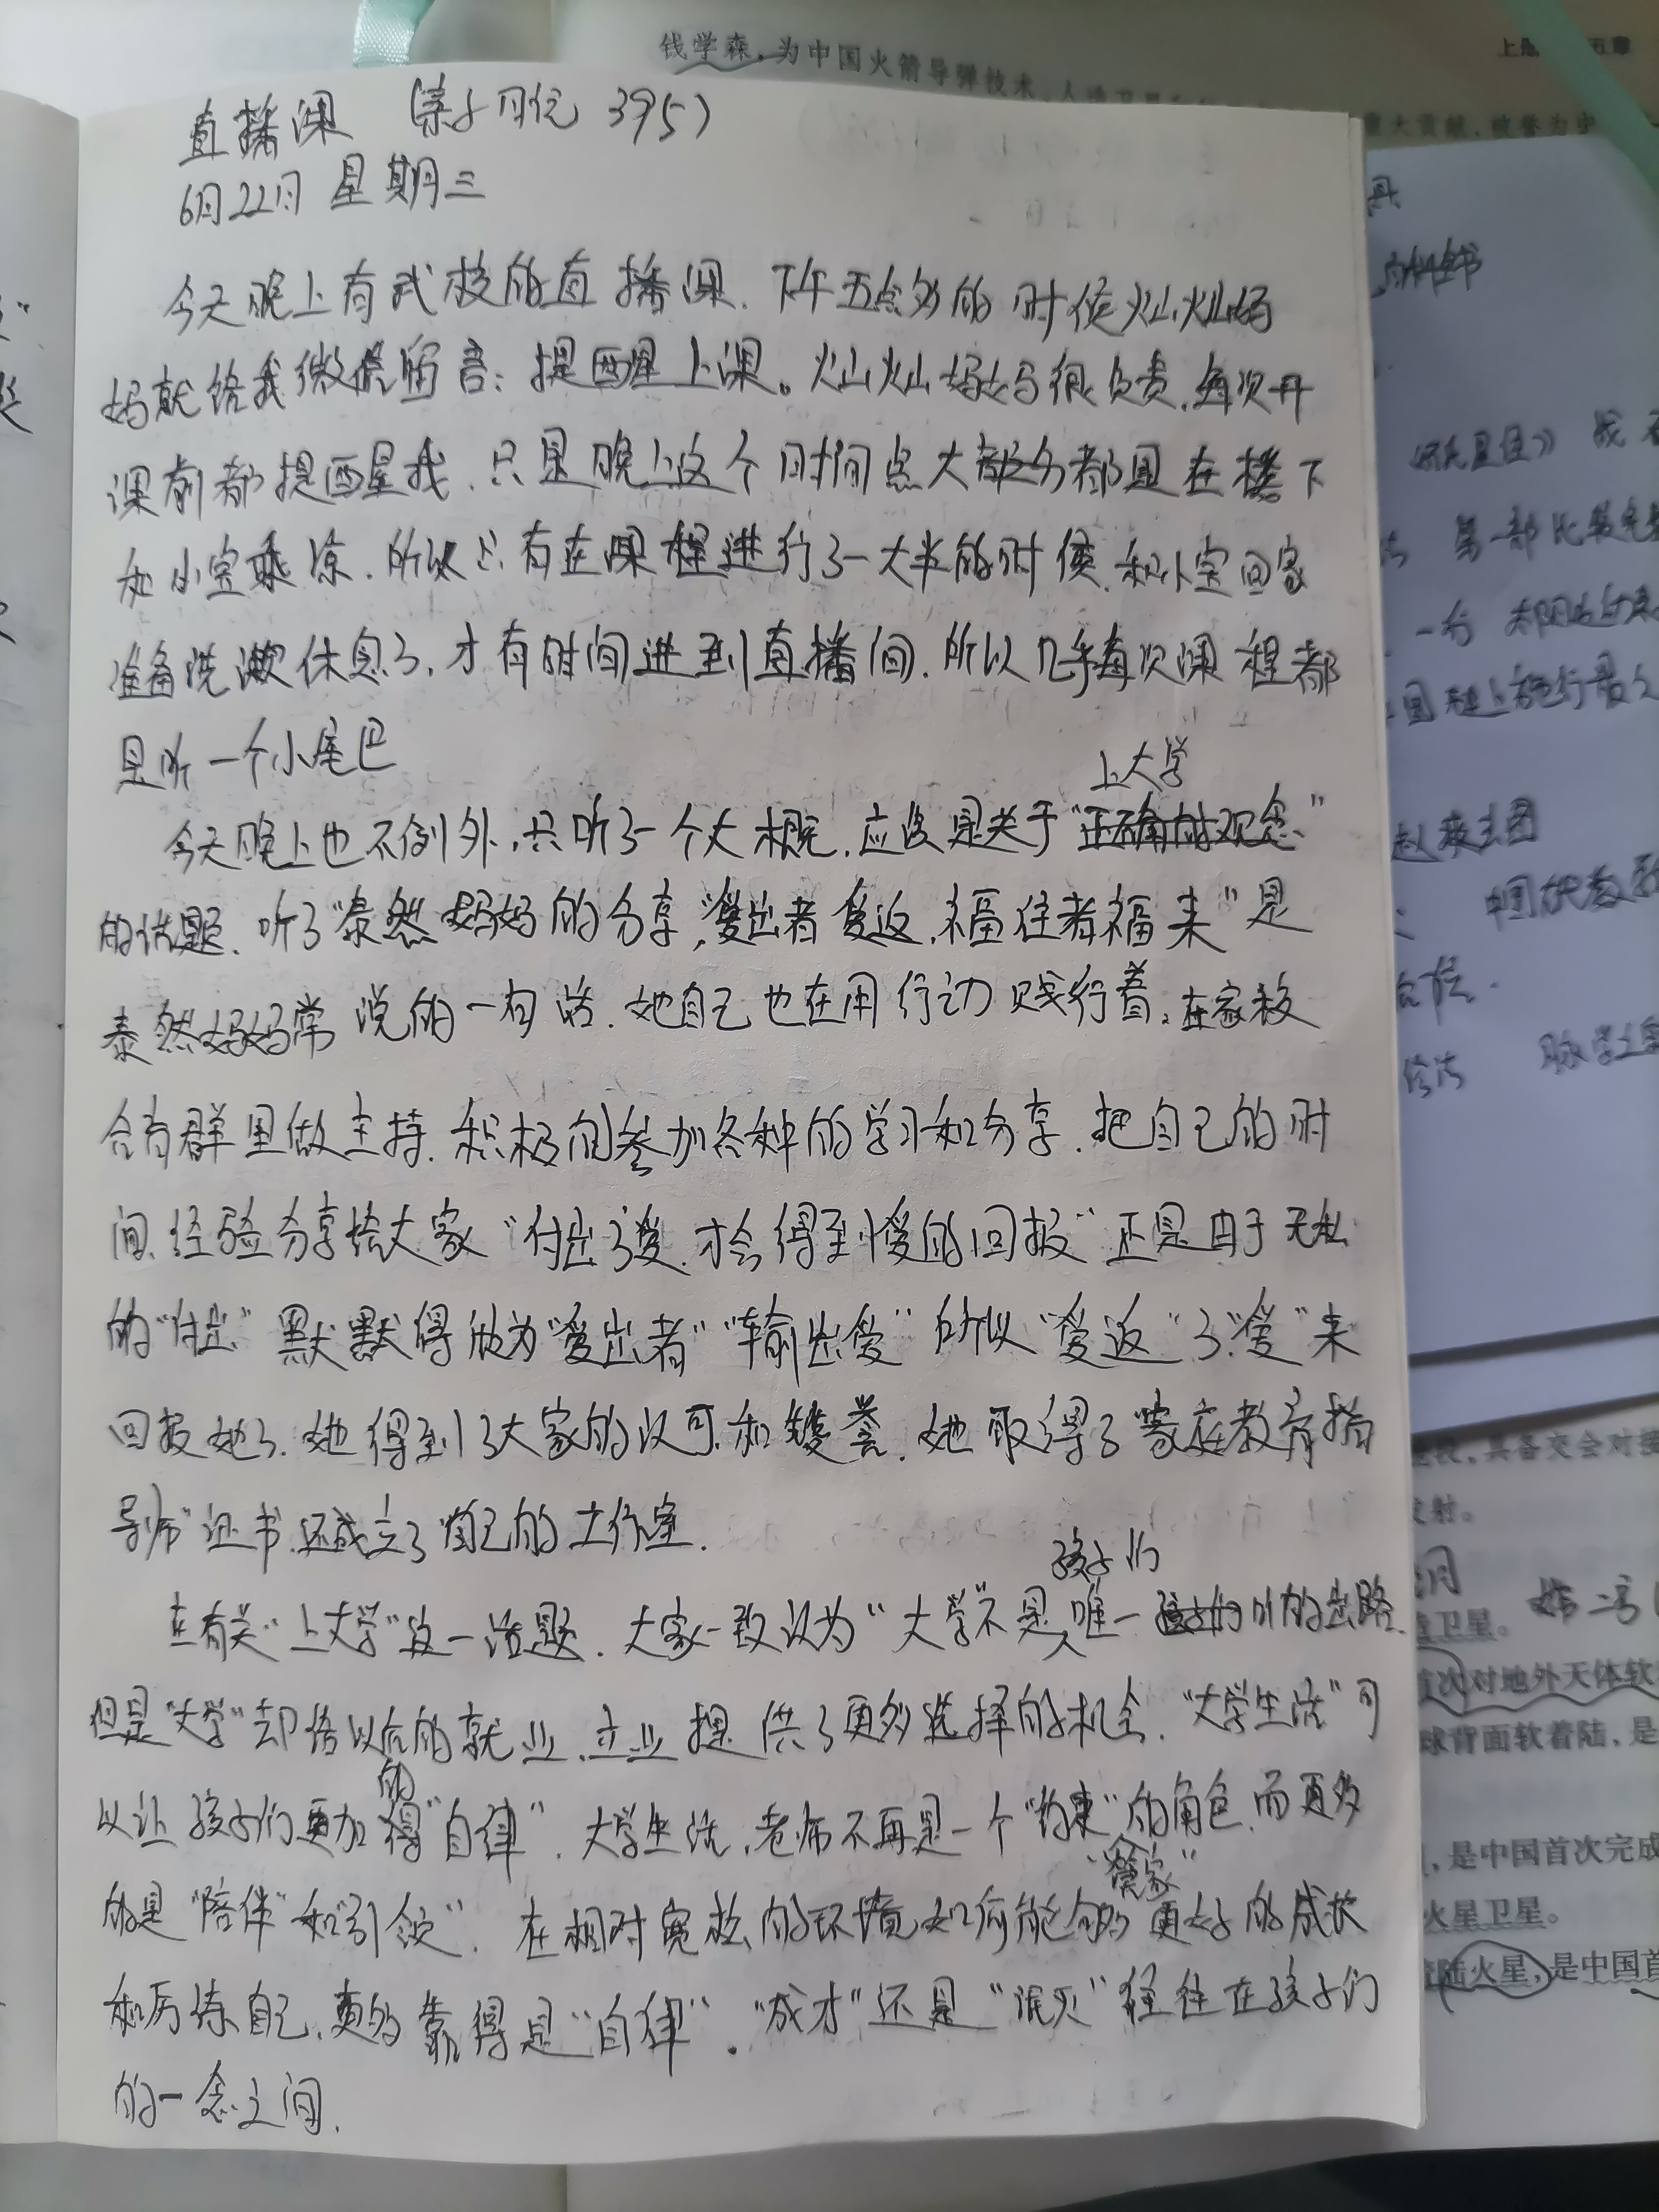 钱学森，为中国火箭导弹技术、人造卫星
直播课 (亲子日记 395)
6月22日 星期三
今天晚上有武校的直播课. 下午五点多的时候灿灿妈
妈就给我微信留言: 提醒星上课。灿灿妈妈很负责,每次开
课前都提醒我. 只是晚上这个时间点大部分都是在楼下
和小宝乘凉. 所以只有在课程进行了一大半的时候. 和小宝回家
准备洗漱休息了, 才有时间进到直播间. 所以几乎每次课程都
是听一个小尾巴
上大学
今天晚上也不例外,只听了一个大概, 应该是关于"正确的观念"
的话题. 听了"泰然妈妈的分享,"爱出者爱返,福往者福来"是
泰然妈妈常说的一句话. 她自己也在用行动践行着, 在家校
合育群里做主持. 积极的参加各种的学习和分享. 把自己的时
间、经验分享给大家 "付出了爱.才会得到爱的回报" 正是由于无私
的"付出" 默默得成为"爱出者" "输出爱" 所以"爱返"了"爱"来
回报她了. 她得到了大家的认可和赞誉. 她取得了"家庭教育指
导师"证书.还成立了自己的工作室.
孩子们
在有关"上大学"这一话题. 大家一致认为"大学"不是唯一的出路.
但是"大学"却给以后的就业、立业提供了更多选择的机会. "大学生活"可
的
以让孩子们更加得"自律". 大学生活, 老师不再是一个"约束"的角色,而更多
"管家"
的是"陪伴"和"引领". 在相对宽松的环境如何能够更好的成长
和历练自己, 更多靠得是"自律". "成才"还是"泯灭"往往在孩子们
的一念之间.
第一部比较完整
赵爽弦图
具备交会对接
发射。
卫星。
首次对地外天体软
球背面软着陆，是
，是中国首次完成
火星卫星。
陆火星，是中国首